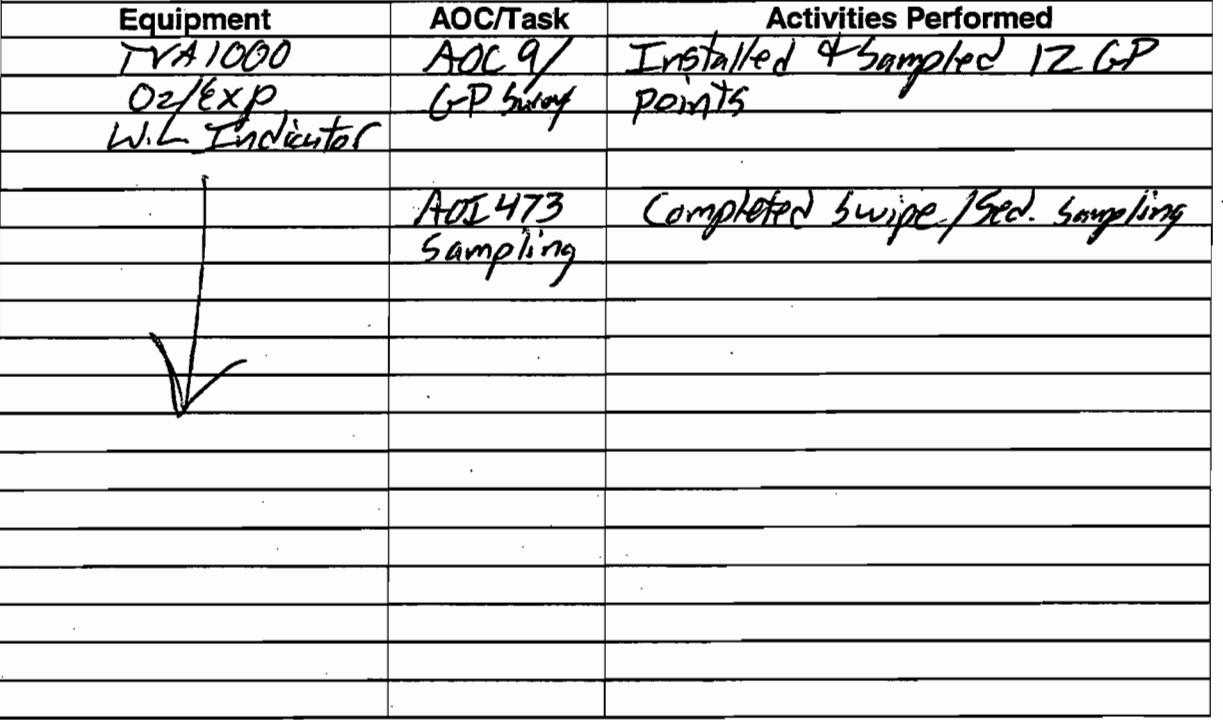 Equipment AOC/Task Activities Performed
TVA1000 AOC 9/ Installed & Sampled 12 GP
O2/Exp GP Survey points
W.L Indicator
AOI 473 Completed Swipe/Sed. Sampling
Sampling